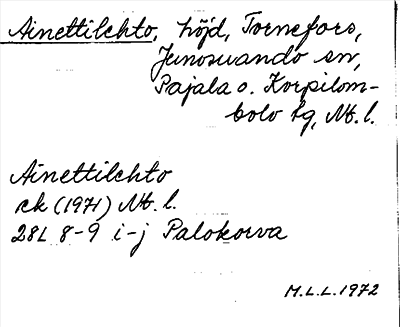 Ainettilehto, höjd, Tornefors,
Junosuando sn,
Pajala o. Korpilom-
bolo tg, Nb. l.
Ainettilehto
ek (1971) Nb. l.
28L 8-9 i-j Palokorva
M.L.L. 1972